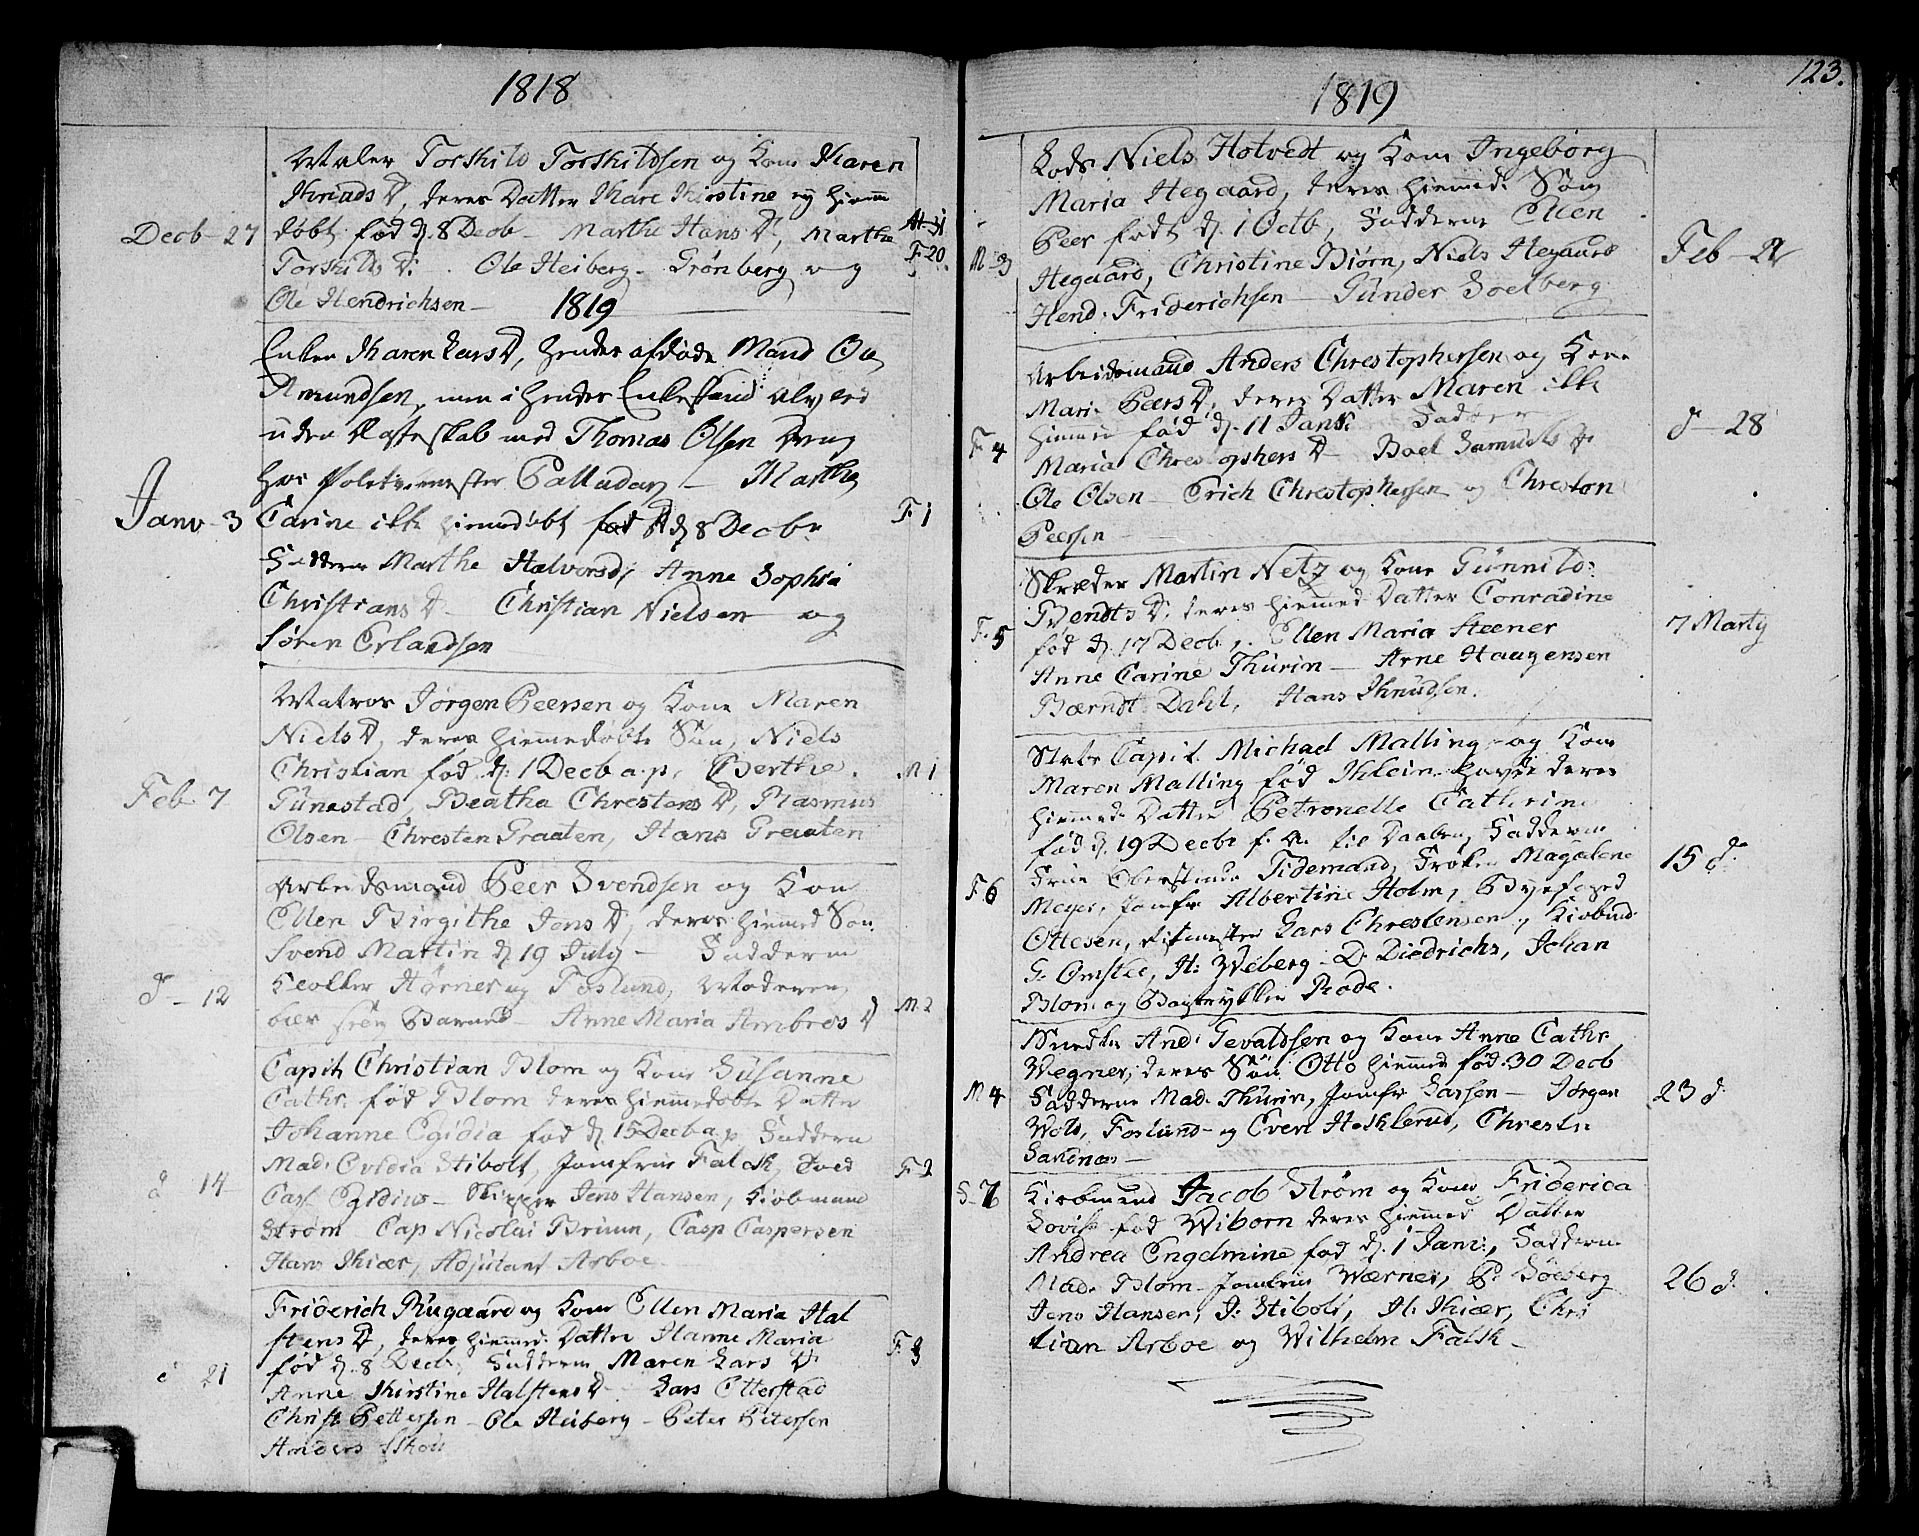 1818
Maler Torskild Torskildsen og Kone Karen
Knuds D, deres Datter Kare Kirstine ey hiemme
Decb - 27 døbt fød d. 8 Decb - Marthe Hans D, Marthe
F 20
Torskilds D: Ole Heiberg - Grønberg og
Ole Hendrichsen -
1819
Enken Karen Lars D, hendes afdøde Mand Ole
Amundsen, men i hendes Enkestand
uden Ægteskab med Thomas Olsen Dreng
hos Politiemester Palludan - Marthe
Janv - 3 Carine ikke hiemedøbt fød d 8 Decbr F 1
Fadderne Marthe Halvorsd, Anne Sophia
Christians D - Christian Nielsen og
Søren Erlandsen
Matros Jørgen Peersen og Kone Maren
Niels D, deres hiemmedøbte Søn, Niels
Christian fød d. 1 Decb a.p. Berthe M 1
Feb. 7 Gunestad, Beatha Chrestens D, Rasmus
Olsen - Chresten Graaten, Hans Graaten
Arbeidsmand Peer Svendsen og Kone
Ellen Birgithe Jens D, deres hiemmed Søn
Svend Martin d 19 July - Fadderne
d - 12 Hørner og Foslund, Moderen M 2
bær sten Barnet - Anne Maria Ambros D
Capit Christian Blom og Kone Susanne
Cathr. fød Blom deres hiemmedøbte Datter
Johanne Egidia fød d 15 Decb a.p. Faddern
d 14 Mad. Ovidia Stibolt, Jomfrue Falck, F 2
Carl Egidius - Skipper Jens Hansen, Kiøbmand
Strøm Cap Nicolai Bruun, Casp Caspersen
Hans Kiær, Adjutant Arboe -
Friderich Rugaard og Kone Ellen Maria Hal
stens D, deres hiemmed. Datter Hanne Maria
fød d. 8 Decb. Fadderne Maren Lars D. F. 3
d 21 Anne Kirstine Halstens D Lars Otterstad
Christ. Pettersen - Ole Heiberg - Peter Petersen
Anders Skou
1819 123.
Lods Niels Hotvedt og Kone Ingeborg
Maria Hegaard, deres hiemmed. Søn
Peer født d. 1 Octb, Fadderne Ellen
M - 3 Hegaard, Christine Biørn, Niels Hegaard Feb - 21
Hend. Friderichsen - Gunder Soelberg
Arbeidsmand Anders Chrestophersen og Kone
Mari. Peers D, deres Datter Maren ikke
hiemmed fød d. 11 Jans. Fadder
F 4 Maria Chrestophers D - Boel Samuels D. d - 28
Ole Olsen - Erich Chrestophersen og Chresten
Peersen -
Skræder Martin Netz og Kone Gunnild
Bendts D. deres hiemmed Datter Conradine
F. 5 fød d. 17 Decb, Ellen Maria Steener 7 Marty
Anne Carine Thurin - Arne Haagensen
Bærndt Dahl, Hans Knudsen.
Stabs Capit. Michael Malling og Kone
Maren Malling fød Klein havde deres
hiemmed. Datter Petronelle Cathrine
fød d. 19 Decbr f. A. til Daaben, Fadderne
Frue Oberstinde Tidemand, Frøken Magdelene 15 d.
F. 6 Meyer, Jomfr Albertine Holm, Byefoged
Ottesen, Ritmester Lars Chrestensen, Kiøbmd.
G. Omsted, H. Weberg - D. Diedrichs, Johan
Blom og Bogtrykker Rode.
Smeden And. Gevaldsen og Kone Anne Cathr.
Wegner, deres Søn Otto hiemmed fød. 30 Decb
M. 4 Fadderne Mad. Thurin, Jomfr Larsen - Jørgen 23 d.
Wold, Foslund - og Even Hesklerud, Chresten
Sandnæs -
7 Kiøbmand Jacob Strøm og Kone Friderica
Lovise fød Wiborn deres hiemmed Datter
Andrea Engelmine fød d. 1 Jan:, Fadderne
Mad. Blom - Jomfrue Wærner, P. Soeberg 26 d.
Jens Hansen, J. Stibolt, H. Kiær, Chri
stian Arboe og Wilhelm Falck -